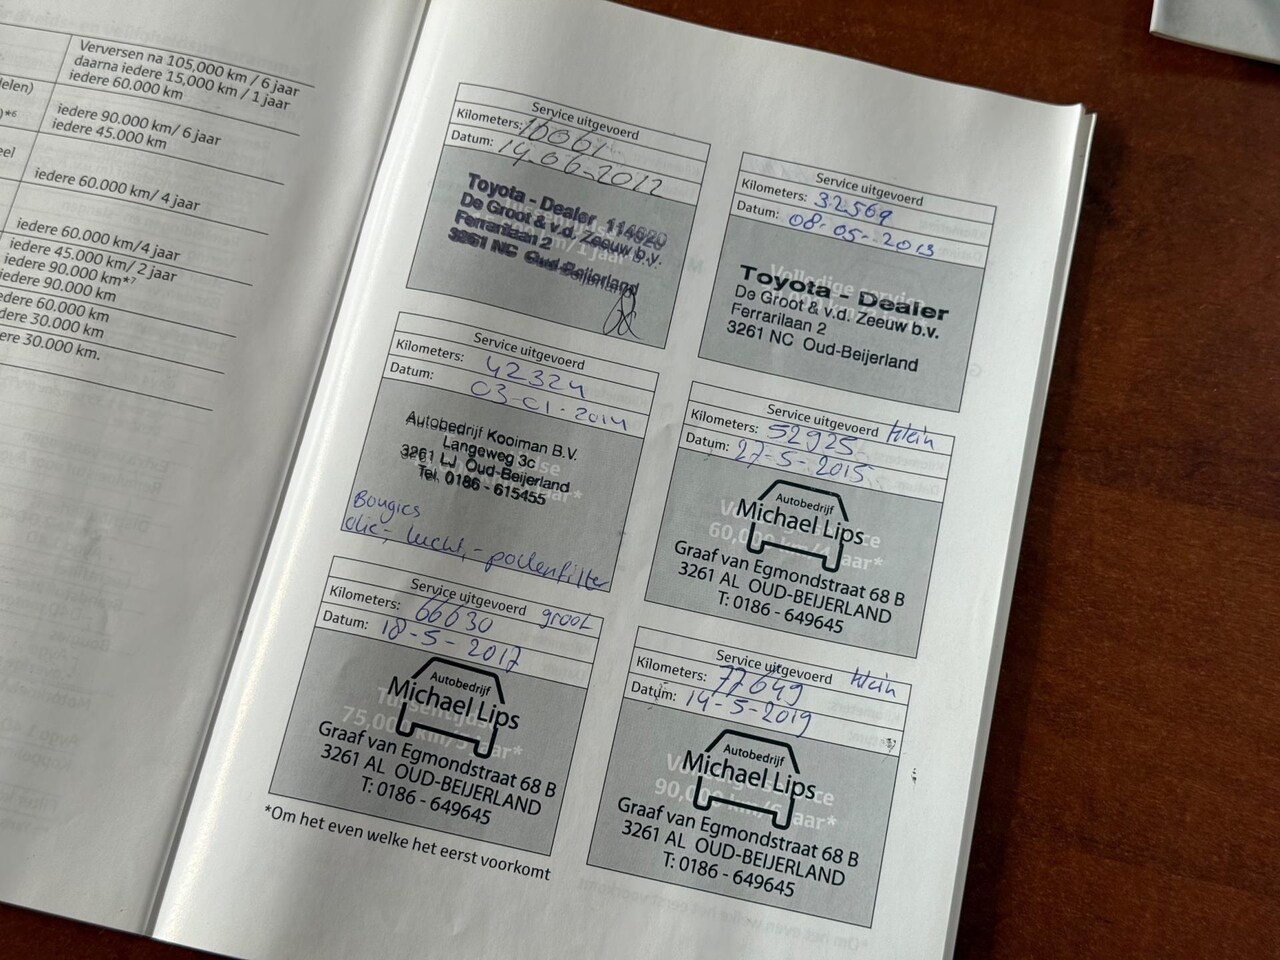 Verversen na 105,000 km / 6 jaar
daarna iedere 15,000 km / 1 jaar
iedere 60.000 km
delen)
)*⁶
iedere 90.000 km/ 6 jaar
iedere 45.000 km
eel
iedere 60.000 km/ 4 jaar
iedere 60.000 km/4 jaar
iedere 45.000 km/ 2 jaar
iedere 90.000 km*⁷
iedere 90.000 km
ere 60.000 km
ere 30.000 km
ere 30.000 km.
Service uitgevoerd
Kilometers: 16061
Datum: 14.06-2012
Toyota - Dealer 114620
De Groot & v.d. Zeeuw b.v.
Ferrarilaan 2
3261 NC Oud-Beijerland
Service uitgevoerd
Kilometers: 32569
Datum: 08-05-2013
Toyota - Dealer
De Groot & v.d. Zeeuw b.v.
Ferrarilaan 2
3261 NC Oud-Beijerland
Service uitgevoerd
Kilometers: 42324
Datum: 03-01-2014
Autobedrijf Kooiman B.V.
Langeweg 3c
3261 LJ Oud-Beijerland
Tel. 0186 - 615455
Bougies
olie-, lucht,- pollenfilter
Service uitgevoerd klein
Kilometers: 52925
Datum: 27-5-2015
60,000 km/4 jaar*
Autobedrijf
Michael Lips
Graaf van Egmondstraat 68 B
3261 AL OUD-BEIJERLAND
T: 0186 - 649645
Service uitgevoerd groot
Kilometers: 66630
Datum: 18-5-2017
75,000 km/5 jaar*
Autobedrijf
Michael Lips
Graaf van Egmondstraat 68 B
3261 AL OUD-BEIJERLAND
T: 0186 - 649645
Service uitgevoerd klein
Kilometers: 77649
Datum: 14-5-2019
90,000 km/6 jaar*
Autobedrijf
Michael Lips
Graaf van Egmondstraat 68 B
3261 AL OUD-BEIJERLAND
T: 0186 - 649645
*Om het even welke het eerst voorkomt